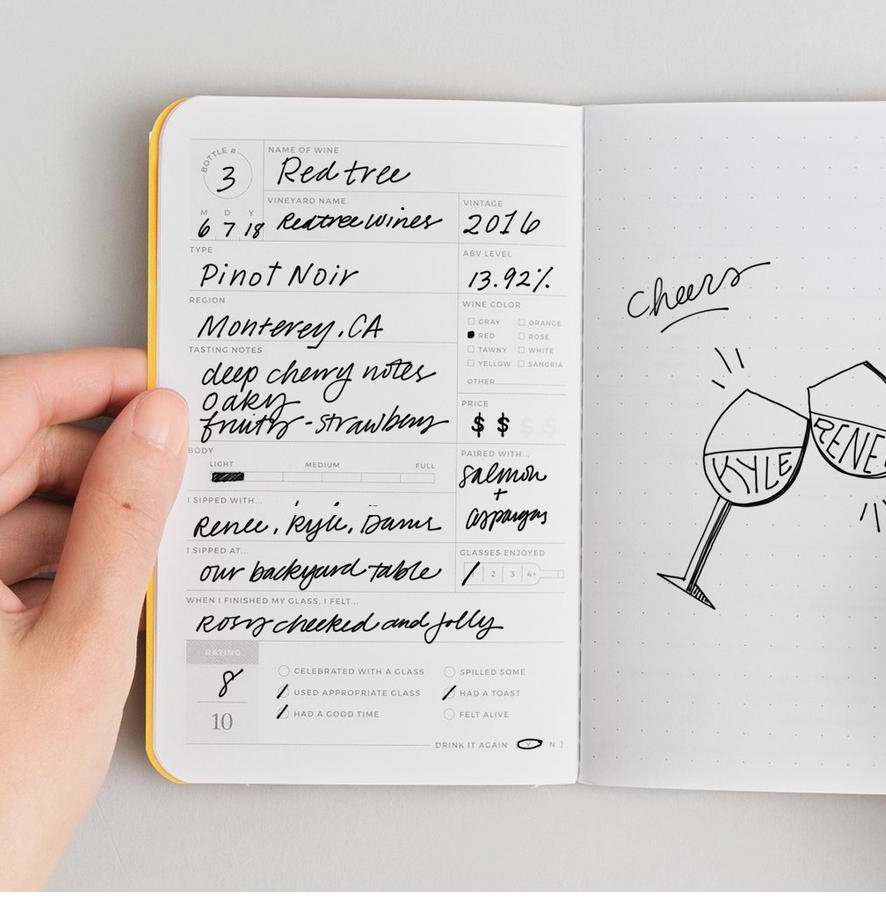 BOTTLE #
3
NAME OF WINE
Redtree
M D Y
6 7 18
VINEYARD NAME
Redtree Wines
VINTAGE
2016
TYPE
Pinot Noir
ABV LEVEL
13.92%
REGION
Monterey, CA
WINE COLOR
GRAY ORANGE
RED ROSÉ
TAWNY WHITE
YELLOW SANGRIA
OTHER
TASTING NOTES
deep cherry notes
oaky
fruity - strawberry
PRICE
$ $ $ $
BODY
LIGHT MEDIUM FULL
PAIRED WITH...
salmon
+
asparagus
I SIPPED WITH...
Renee, Kyle,
I SIPPED AT...
our backyard table
GLASSES ENJOYED
2 3 4+
WHEN I FINISHED MY GLASS, I FELT...
Rosy cheeked and jolly
RATING
8
10
CELEBRATED WITH A GLASS SPILLED SOME
USED APPROPRIATE GLASS HAD A TOAST
HAD A GOOD TIME FELT ALIVE
DRINK IT AGAIN Y N
cheers
KYLE
RENE